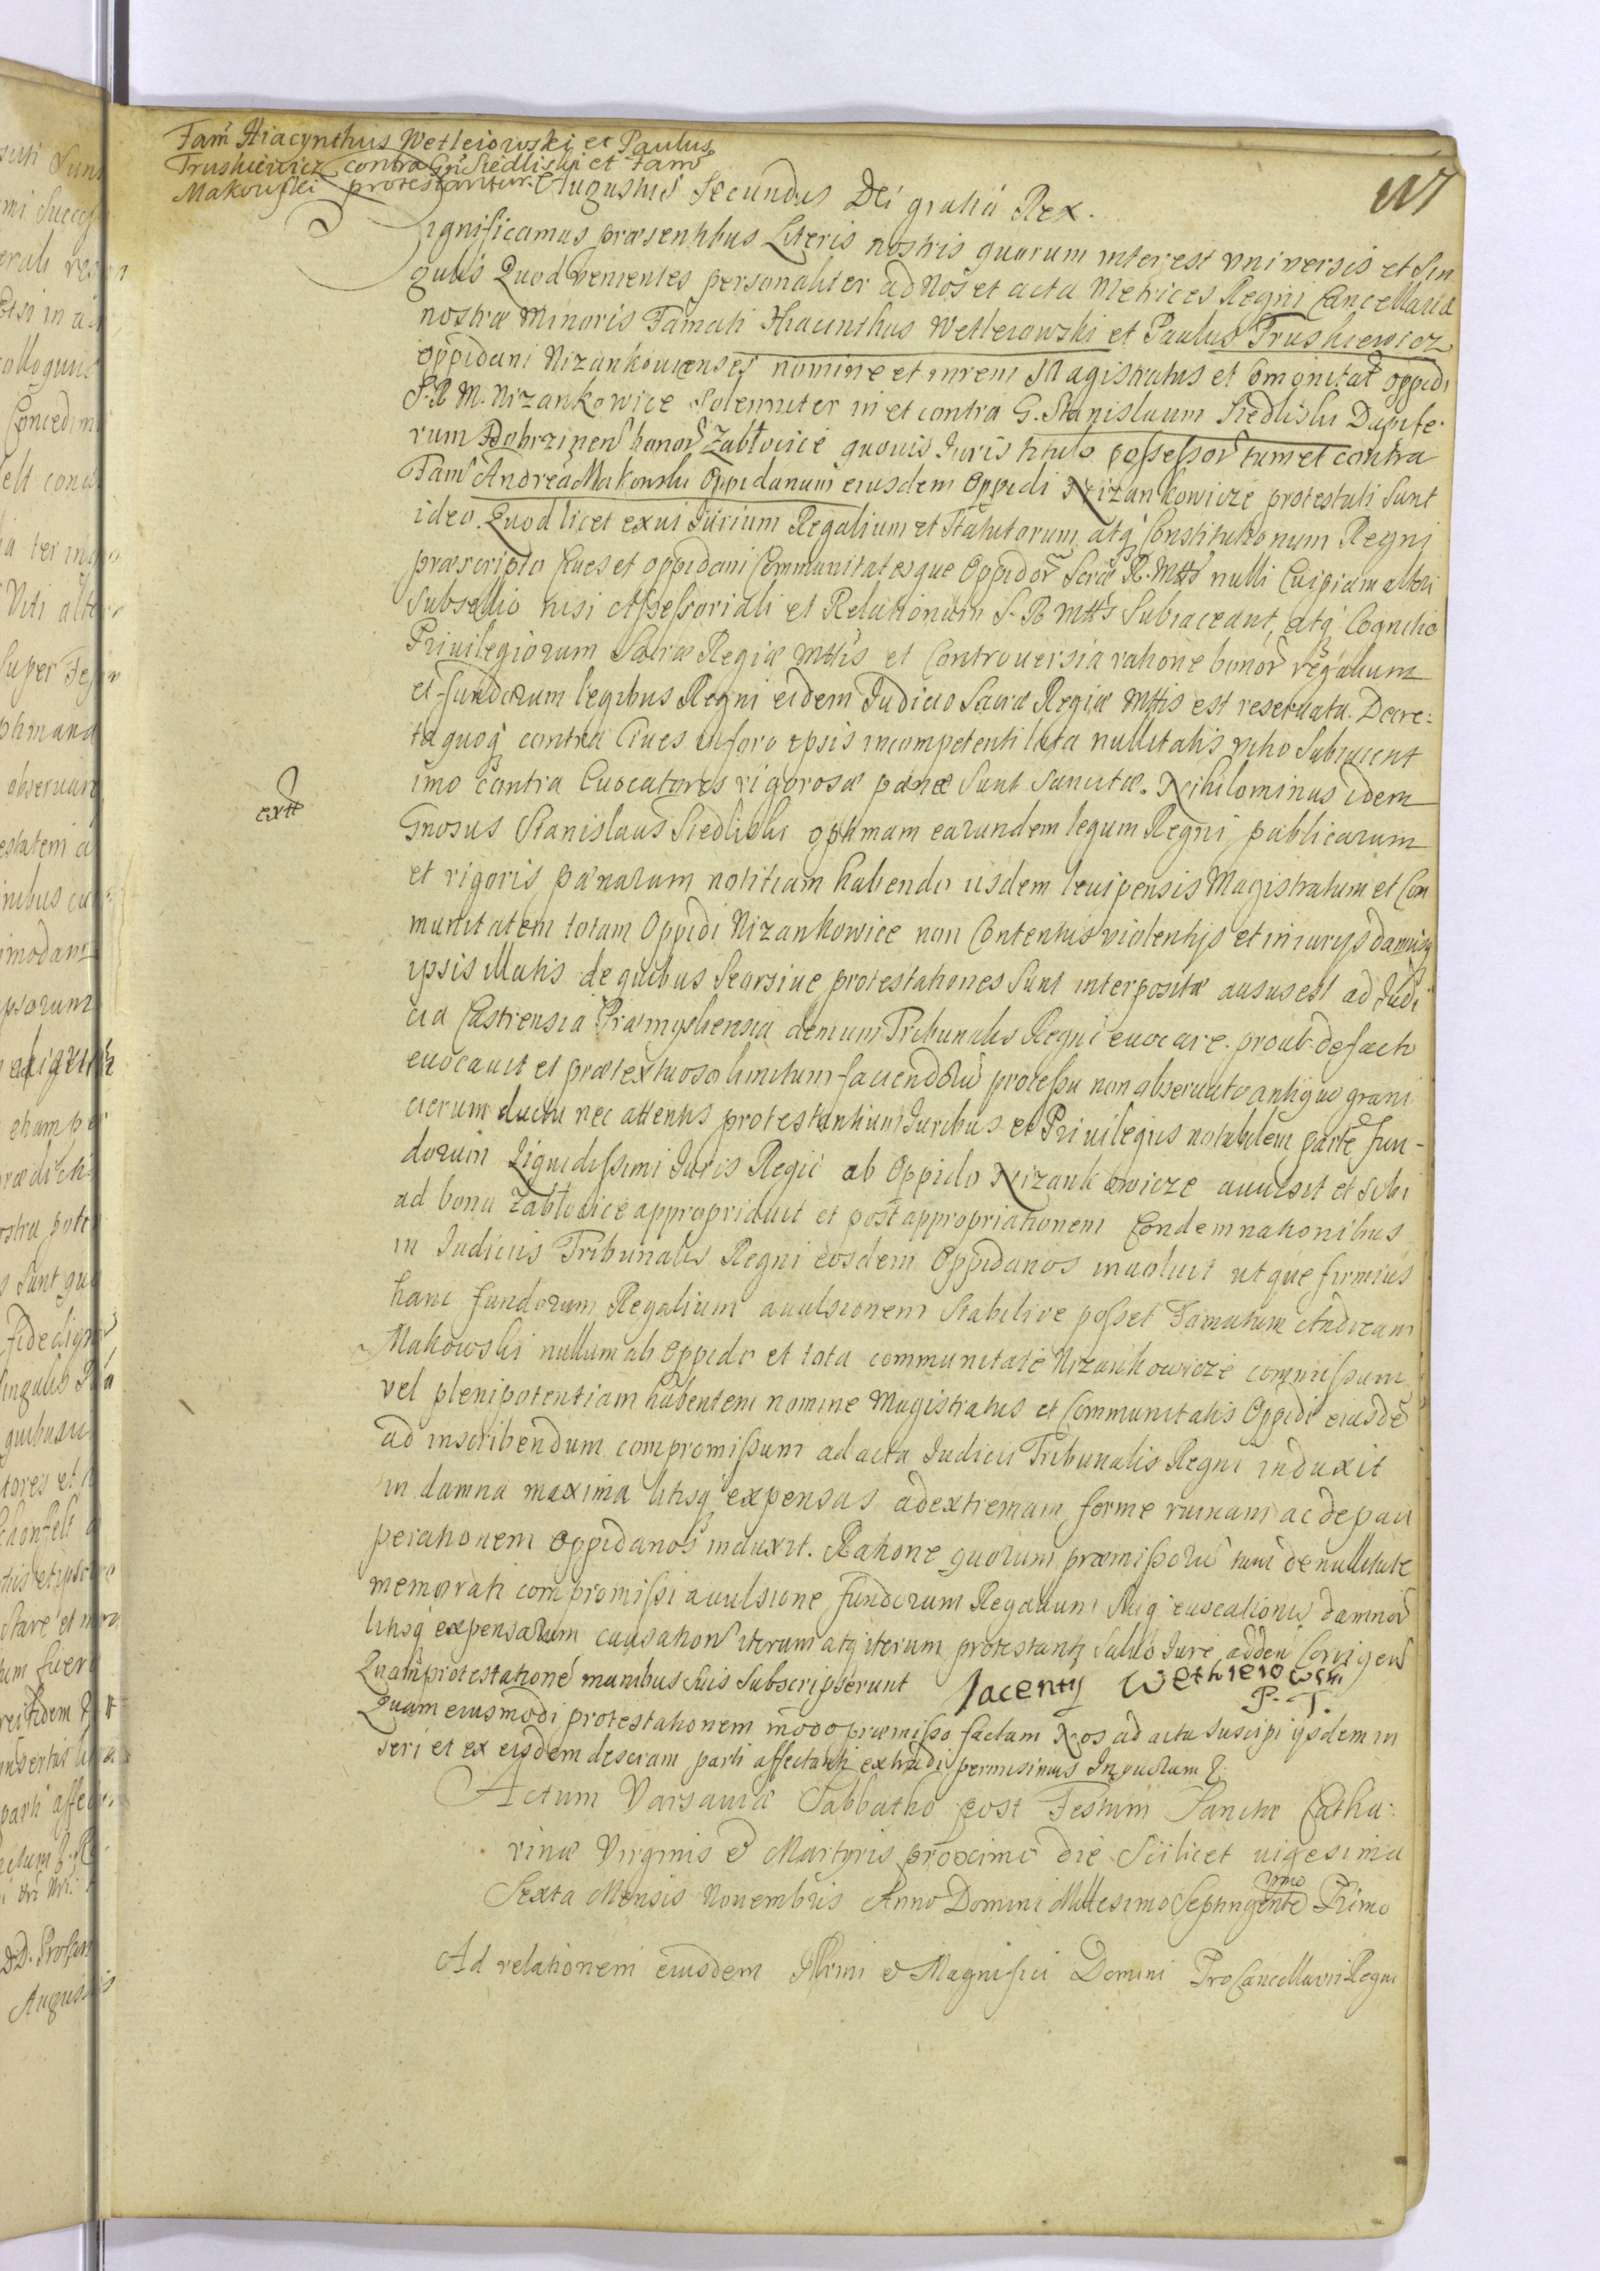 Fam Hiacynthus Wetleiowski et Paulus
Trushiewicz contra Gn Siedliski et Fam
Makowski protestantur.
Augustus Secundus Dei gratia Rex.
Significamus præsentibus Literis nostris quorum interest vniversis et Sin
gulis Quod venientes personaliter ad Nos et acta Metrices Regni Cancellariæ
nostræ Minoris Famati Hiacinthus Wetleiowski et Paulus Trushiewicz
oppidani Nizankouienses nomine et in rem Magistratus et Comonitat oppidi
S. R. M. Nizankowice Solenniter in et contra G. Stanislaum Siedliski Dapife
rum Dobrzinen bonor Zabłocice quouis Iuris titulo possessor tum et contra
Fam Andreã Makowski Oppidanum eiusdem Oppidi Nizankowicze protestati sunt
ideo. Quod licet ex ui Iurium Regalium et Statutorum atq Constitutionum Regni
præscripto Ciues et oppidani Communitatesque Oppidor Scræ R. Mttis nulli Cuipiam alteri
Subsellio nisi Assessoriali et Relationum S. R. Mttis Subiaceant, atq Cognitio
Priuilegiorum Sacræ Regiæ Mttis et Controuersia ratione bonor regalium
et fundorum legibus Regni eidem Iudicio Sacræ Regiæ Mttis est reseruata. Decre:
taquoq contra Ciues in foro ipsis incompetenti lata nullitatis vitio Subiacent
imo contra Euocatores rigorosæ pænæ Sunt Sancitæ. Nihilominus idem
extt
Gnosus Stanislaus Siedliski optimam earundem legum Regni publicarum
et rigoris pænarum notitiam habendo iisdem leuipensis Magistratum et Com
munitatem totam Oppidi Nizankowice non Contentus violentijs et iniurijs damnisq
ipsis illatis de quibus Seorsiue protestationes Sunt interpositæ ausus est ad Iudi
cia Castrensia Præmysliensia demum Tribunalis Regni euocare. prout de facto
euocauit et prætextuoso limitum faciendorũ processu non obseruato antiquo grani
cierum ductu nec attentis protestantium Iuribus et Priuilegiis notabilem partẽ fun-
dorum Liquidissimi Iuris Regii ab Oppido Nizankowicze auulsit et sibi
ad bona Zabłocice appropriauit et post appropriationem Condemnationibus
in Iudiciis Tribunalis Regni eosdem Oppidanos inuoluit utque firmius
hanc fundorum Regalium auulsionem Stabilire posset Famatum Andream
Makowski nullum ab Oppido et tota communitate Nizankowicze commissum
vel plenipotentiam habentem nomine Magistratus et Communitatis Oppidi eiusdẽ
ad inscribendum compromissum ad acta Iudicii Tribunalis Regni induxit
in damna maxima litisq expensas ad extremam ferme ruinam ac depau
perationem oppidanos induxit. Ratione quorum præmissorũ tum de nullitate
memorati compromissi auulsione fundorum Regalium euocationis damnor
litisq expensarum causation iterum atq iterum protestanti Saluo Iure adden Corrigen
Quam protestationẽ manibus Suis Subscripserunt Jacenty Wethlerowski
P. T.
Quam eiusmodi protestationem modo præmisso factam Nos ad acta suscipi ijsdem in
seri et ex eisdem descram parti affectanti extradi permisimus In quorum &
Actum Varsauiæ Sabbatho post Festum Sanctæ Catha:
rinæ Virginis & Martyris proximo die Scilicet uigesima
Sexta Mensis Nouembris Anno Domini Millesimo Septingente simo Primo
Ad relationem eiusdem Illrmi & Magnifici Domini ProCancellarii Regni